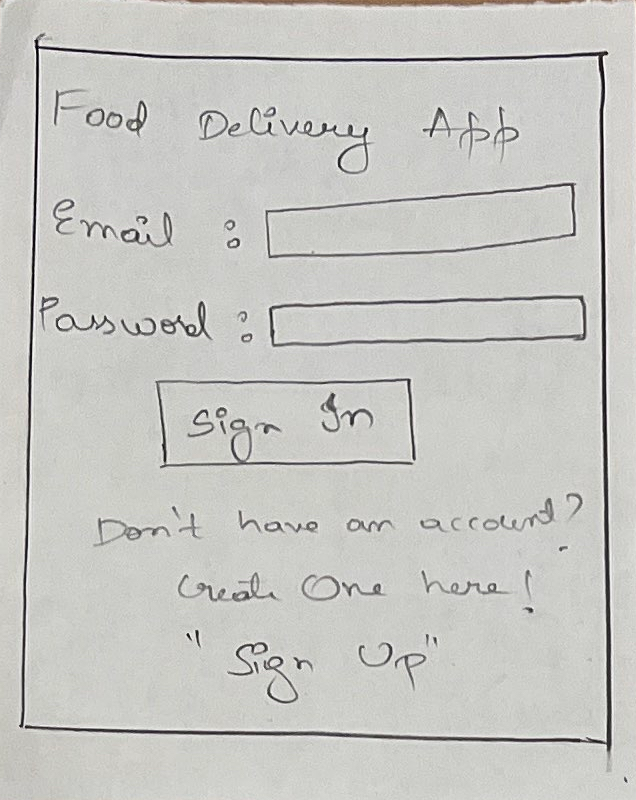 Food Delivery App
Email :
Password :
Sign In
Don't have an account?
Create One here!
"Sign Up"